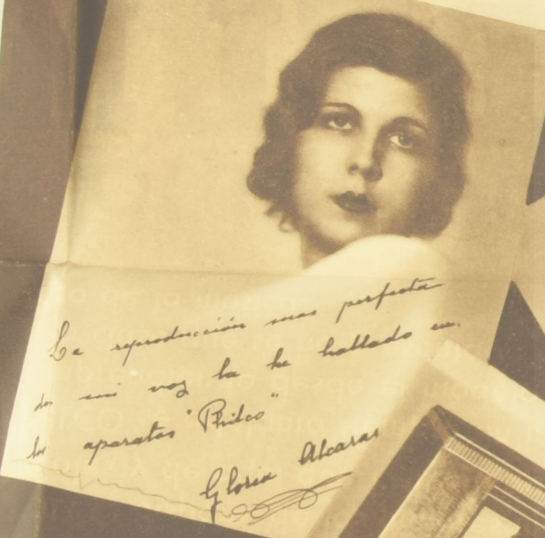 La reproducción mas perfecta
de mi voz la he hallado en
los aparatos "Philco"
Gloria Alcaraz